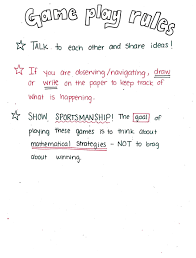 Game play rules
TALK to each other and share ideas!
If you are observing/navigating, draw
or write on the paper to keep track of
what is happening.
SHOW SPORTSMANSHIP! The goal of
playing these games is to think about
mathematical strategies - NOT to brag
about winning.